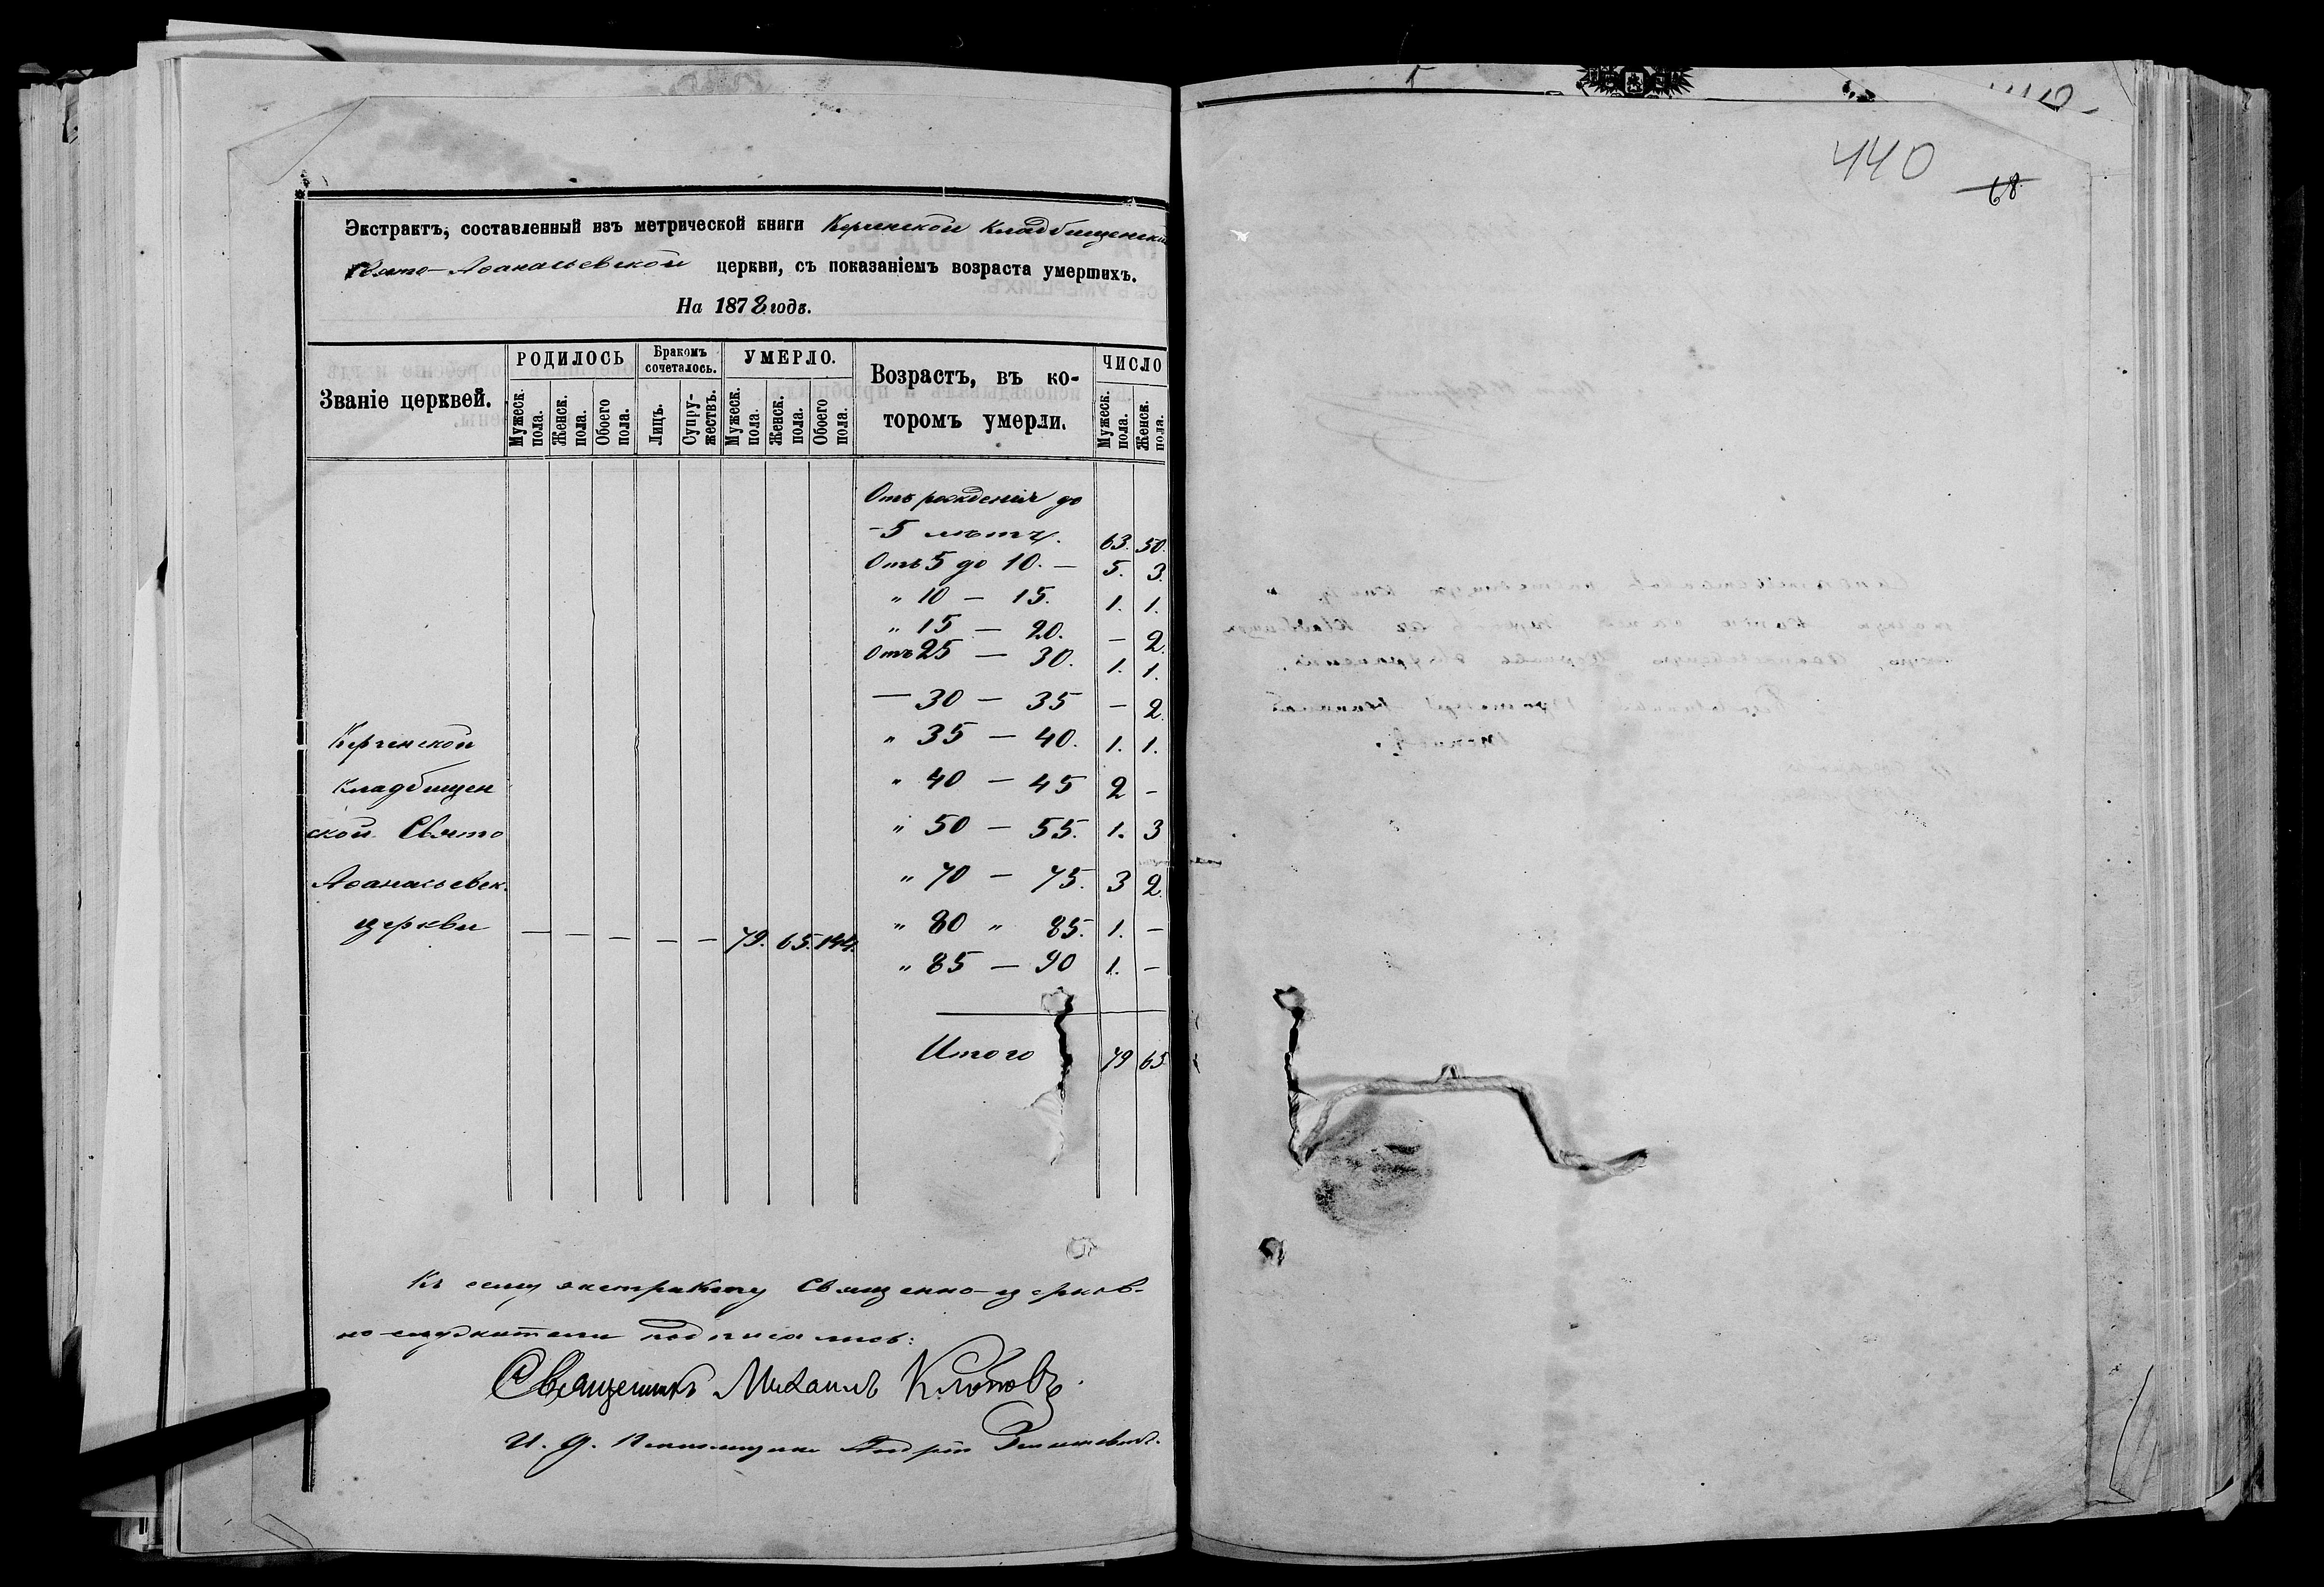 Экстрактъ, составленный изъ метрической книги Керченской Кладбищенской
Свято-Аѳанасьевской церкви, съ показаніемъ возраста умершихъ.
На 1878 годъ.
Званіе церквей.
РОДИЛОСЬ
Мужеск. пола.
Женск. пола.
Обоего пола.
Бракомъ сочеталось.
Лицъ.
Супружествъ.
УМЕРЛО.
Мужеск. пола.
Женск. пола.
Обоего пола.
Возрастъ, въ ко-
торомъ умерли.
ЧИСЛО
Мужеск. пола.
Женск. пола.
Отъ рожденія до
5 лѣтъ. 63. 50.
Отъ 5 до 10. — 5. 3.
" 10 — 15. 1. 1.
" 15 — 20. — 2.
Отъ 25 — 30. 1. 1.
— 30 — 35 — 2.
" 35 — 40. 1. 1.
" 40 — 45 2 —
" 50 — 55. 1. 3
" 70 — 75. 3 2.
" 80 " 85. 1. —
" 85 — 90 1. —
Итого 79 65
Керченской
Кладбищен
ской Свято
Аѳанасьевск.
церкви — — — — — 79. 65. 144.
Къ сему экстракту Священно-церков-
но-служители подписались:
Священникъ Михаилъ
И. д. Псаломщика Андрей
440
68